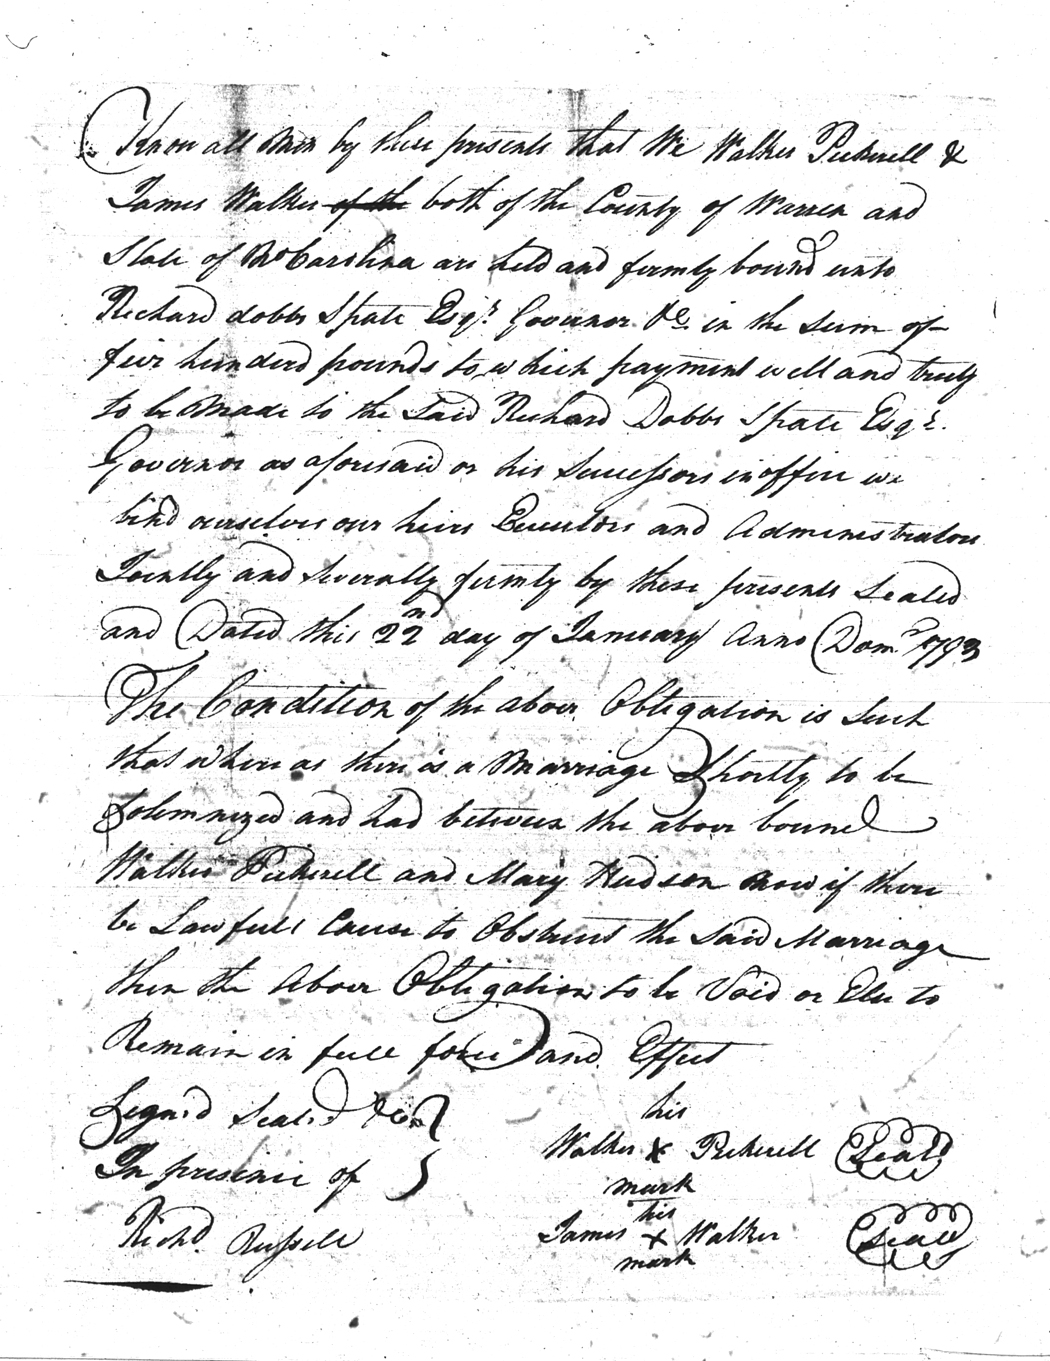 Know all Men by these presents that We Walker Pickerell &
James Walker of the both of the County of Warren and
State of No Carolina are held and firmly bound unto
Richard dobbs Spate Esqr. Governor &c. in the Sum of
five hunderd pounds to which payment well and truly
to be Made to the Said Richard Dobbs Spate Esqr.
Governor as aforesaid or his Successors in office we
bind ourselves our heirs Executors and Administrators
Jointly and Severally firmly by these presents Sealed
and Dated this 22nd day of January Anno Dom. 1793
The Condition of the above Obligation is Such
that where as there is a Marriage Shortly to be
Solemnized and had between the above bound
Walker Pickerell and Mary Hudson Now if there
be Lawfull Cause to Obstruct the Said Marriage
then the Above Obligation to be Void or Else to
Remain in full force and Effect
Signd Seald &c.
In presence of
Richd. Russell
his
Walker X Pickerell Seald
mark
his
James X Walker Seald
mark